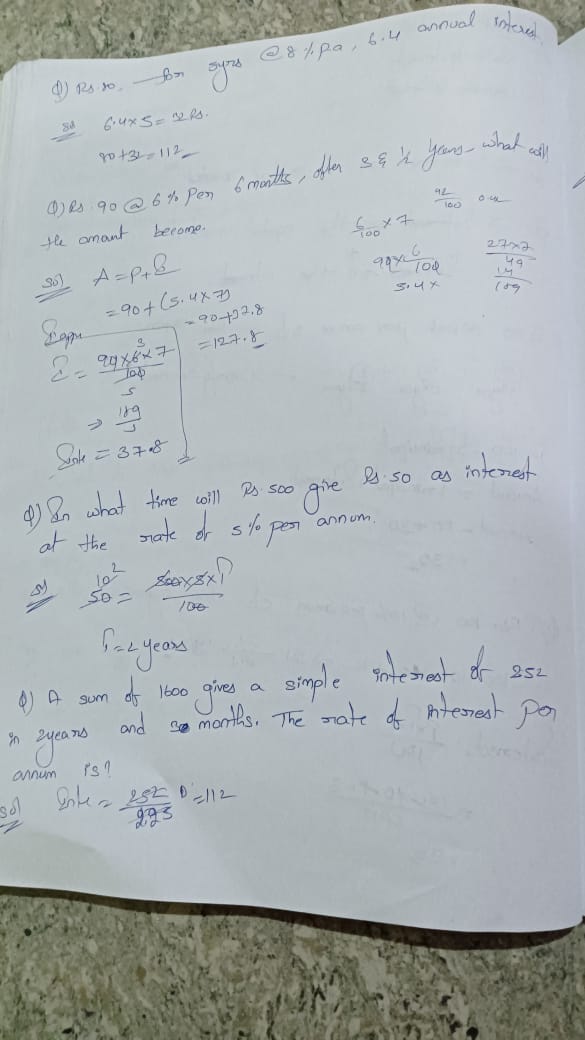 Q) Rs 80. for 5yrs @ 8 % pa, 6.4 annual interest.
sol 6.4 x 5 = 32 Rs.
80+32=112
Q) Rs. 90 @ 6 % Per 6 months, after 3 & ½ years, what will
the amant become.
6/100 x 7
sol) A = P+
= 90 + (5.4 x 7)
= 90 + 37.8
= 127.8
90 x 6/100
5.4 x
27 x 7
49
14
189
= 90 x 6 x 7 / 100
3
5
⇒ 189/5
= 37.8
Q) In what time will Rs. 500 give Rs. 50 as interest
at the rate of 5 % per annum.
sol 50 = 500 x 5 x T / 100
10 2
T = 2 years
Q) A sum of 1600 gives a simple interest of 252
in 2years and 3 months. The rate of interest per
annum is?
sol = 252 / 2.25 = 112